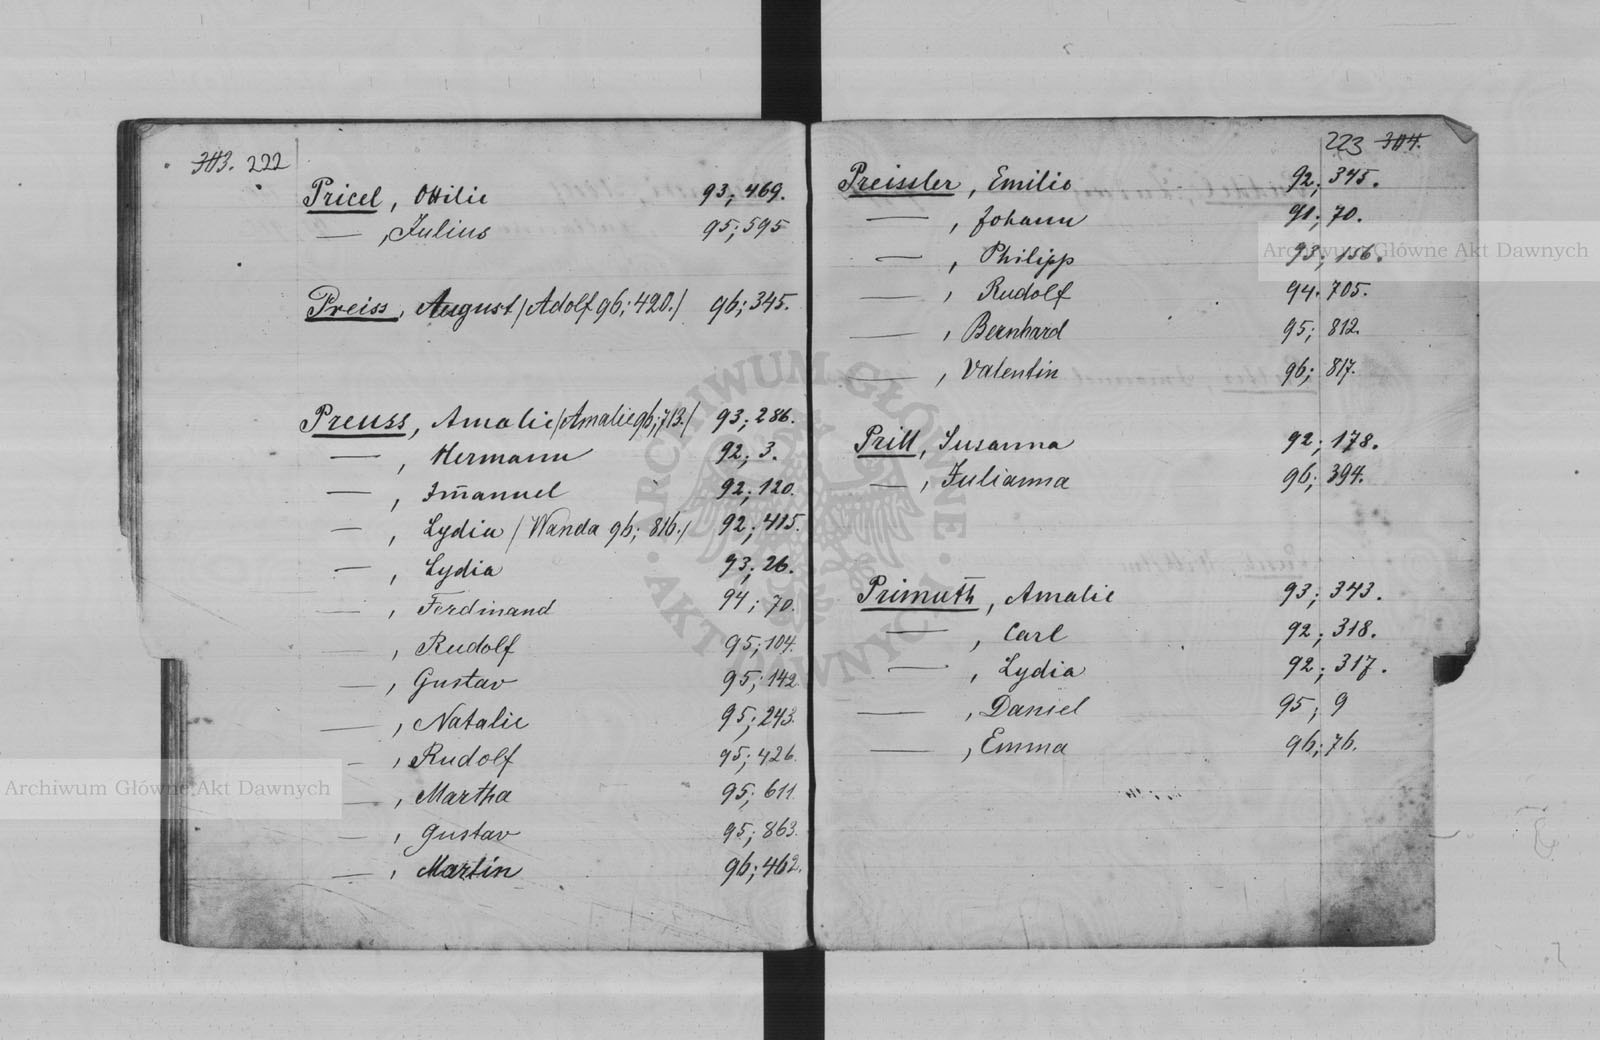 303. 222
Pricel, Ottilie 93; 469.
— , Julius 95; 595
Preiss, August /Adolf 96; 420./ 96; 345.
Preuss, Amalie /Amalie 96; 713./ 93; 286.
— , Hermann 92; 3.
— , Im̄anuel 92; 120.
— , Lydia /Wanda 96; 816./ 92; 415.
— , Lydia 93; 26.
— , Ferdinand 94; 70.
— , Rudolf 95; 104.
— , Gustav 95; 142
— , Natalie 95; 243.
— , Rudolf 95; 426.
— , Martha 95; 611
— , Gustav 95; 863.
— , Martin 96; 462.
223 304.
Preissler, Emilie 92; 345.
— , Johann 91; 70.
— , Philipp 93; 156.
— , Rudolf 94. 705.
— , Bernhard 95; 812.
— , Valentin 96; 817.
Prill, Susanna 92; 178.
— , Julianna 96; 394.
Primuth, Amalie 93; 343.
— , Carl 92; 318.
— , Lydia 92; 317.
— , Daniel 95; 9
— , Emma 96; 76.
Archiwum Główne Akt Dawnych
Archiwum Główne Akt Dawnych
ARCHIWUM GŁÓWNE · AKT DAWNYCH ·